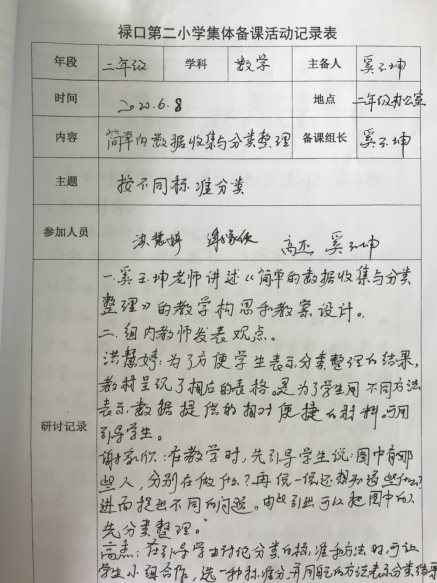 禄口第二小学集体备课活动记录表
年段 二年级 学科 数学 主备人 奚玉坤
时间 2020.6.8 地点 二年级办公室
内容 简单的数据收集与分类整理 备课组长 奚玉坤
主题 按不同标准分类
参加人员 洪慧婷 谢家欣 高杰 奚玉坤
研讨记录
一.奚玉坤老师讲述《简单的数据收集与分类
整理》的教学构思和教案设计。
二.组内教师发表观点。
洪慧婷:为了方便学生表示分类整理的结果,
教材呈现了相应的表格。是为了学生用不同方法
表示数据提供的相对便捷的材料。可用
引导学生。
谢家欣:在教学时,先引导学生说:图中有哪
些人,分别在做什么?再说一说还想知道些什么?
进而提出不同的问题。由此引出可以把图中的人
先分类整理。
高杰:在引导学生讨论分类的标准和方法时,可让
学生小组合作,选一种标准分,并用自己的方法表示分类结果